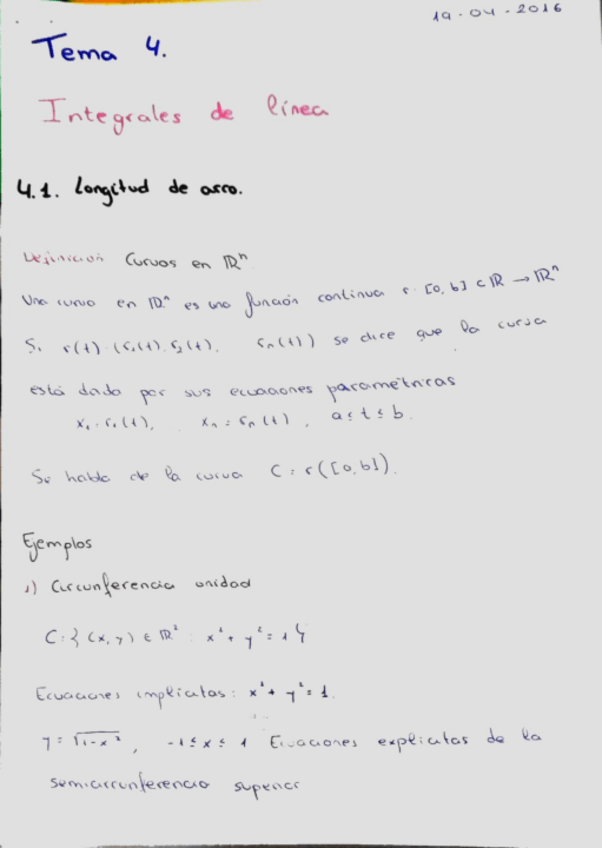 19-04-2016
Tema 4.
Integrales de línea
4.1. Longitud de arco.
Definición Curvas en ℝⁿ.
Una curva en ℝⁿ es una función continua r: [a, b] ⊂ ℝ → ℝⁿ
Si r(t) = (r₁(t), r₂(t), rₙ(t)) se dice que la curva
está dada por sus ecuaciones paramétricas
x₁ = r₁(t), xₙ = rₙ(t), a ≤ t ≤ b.
Se habla de la curva C = r([a, b]).
Ejemplos
1) Circunferencia unidad
C = { (x, y) ∈ ℝ² : x² + y² = 1 }
Ecuaciones implícitas: x² + y² = 1.
y = √(1-x²), -1 ≤ x ≤ 1 Ecuaciones explícitas de la
semicircunferencia superior